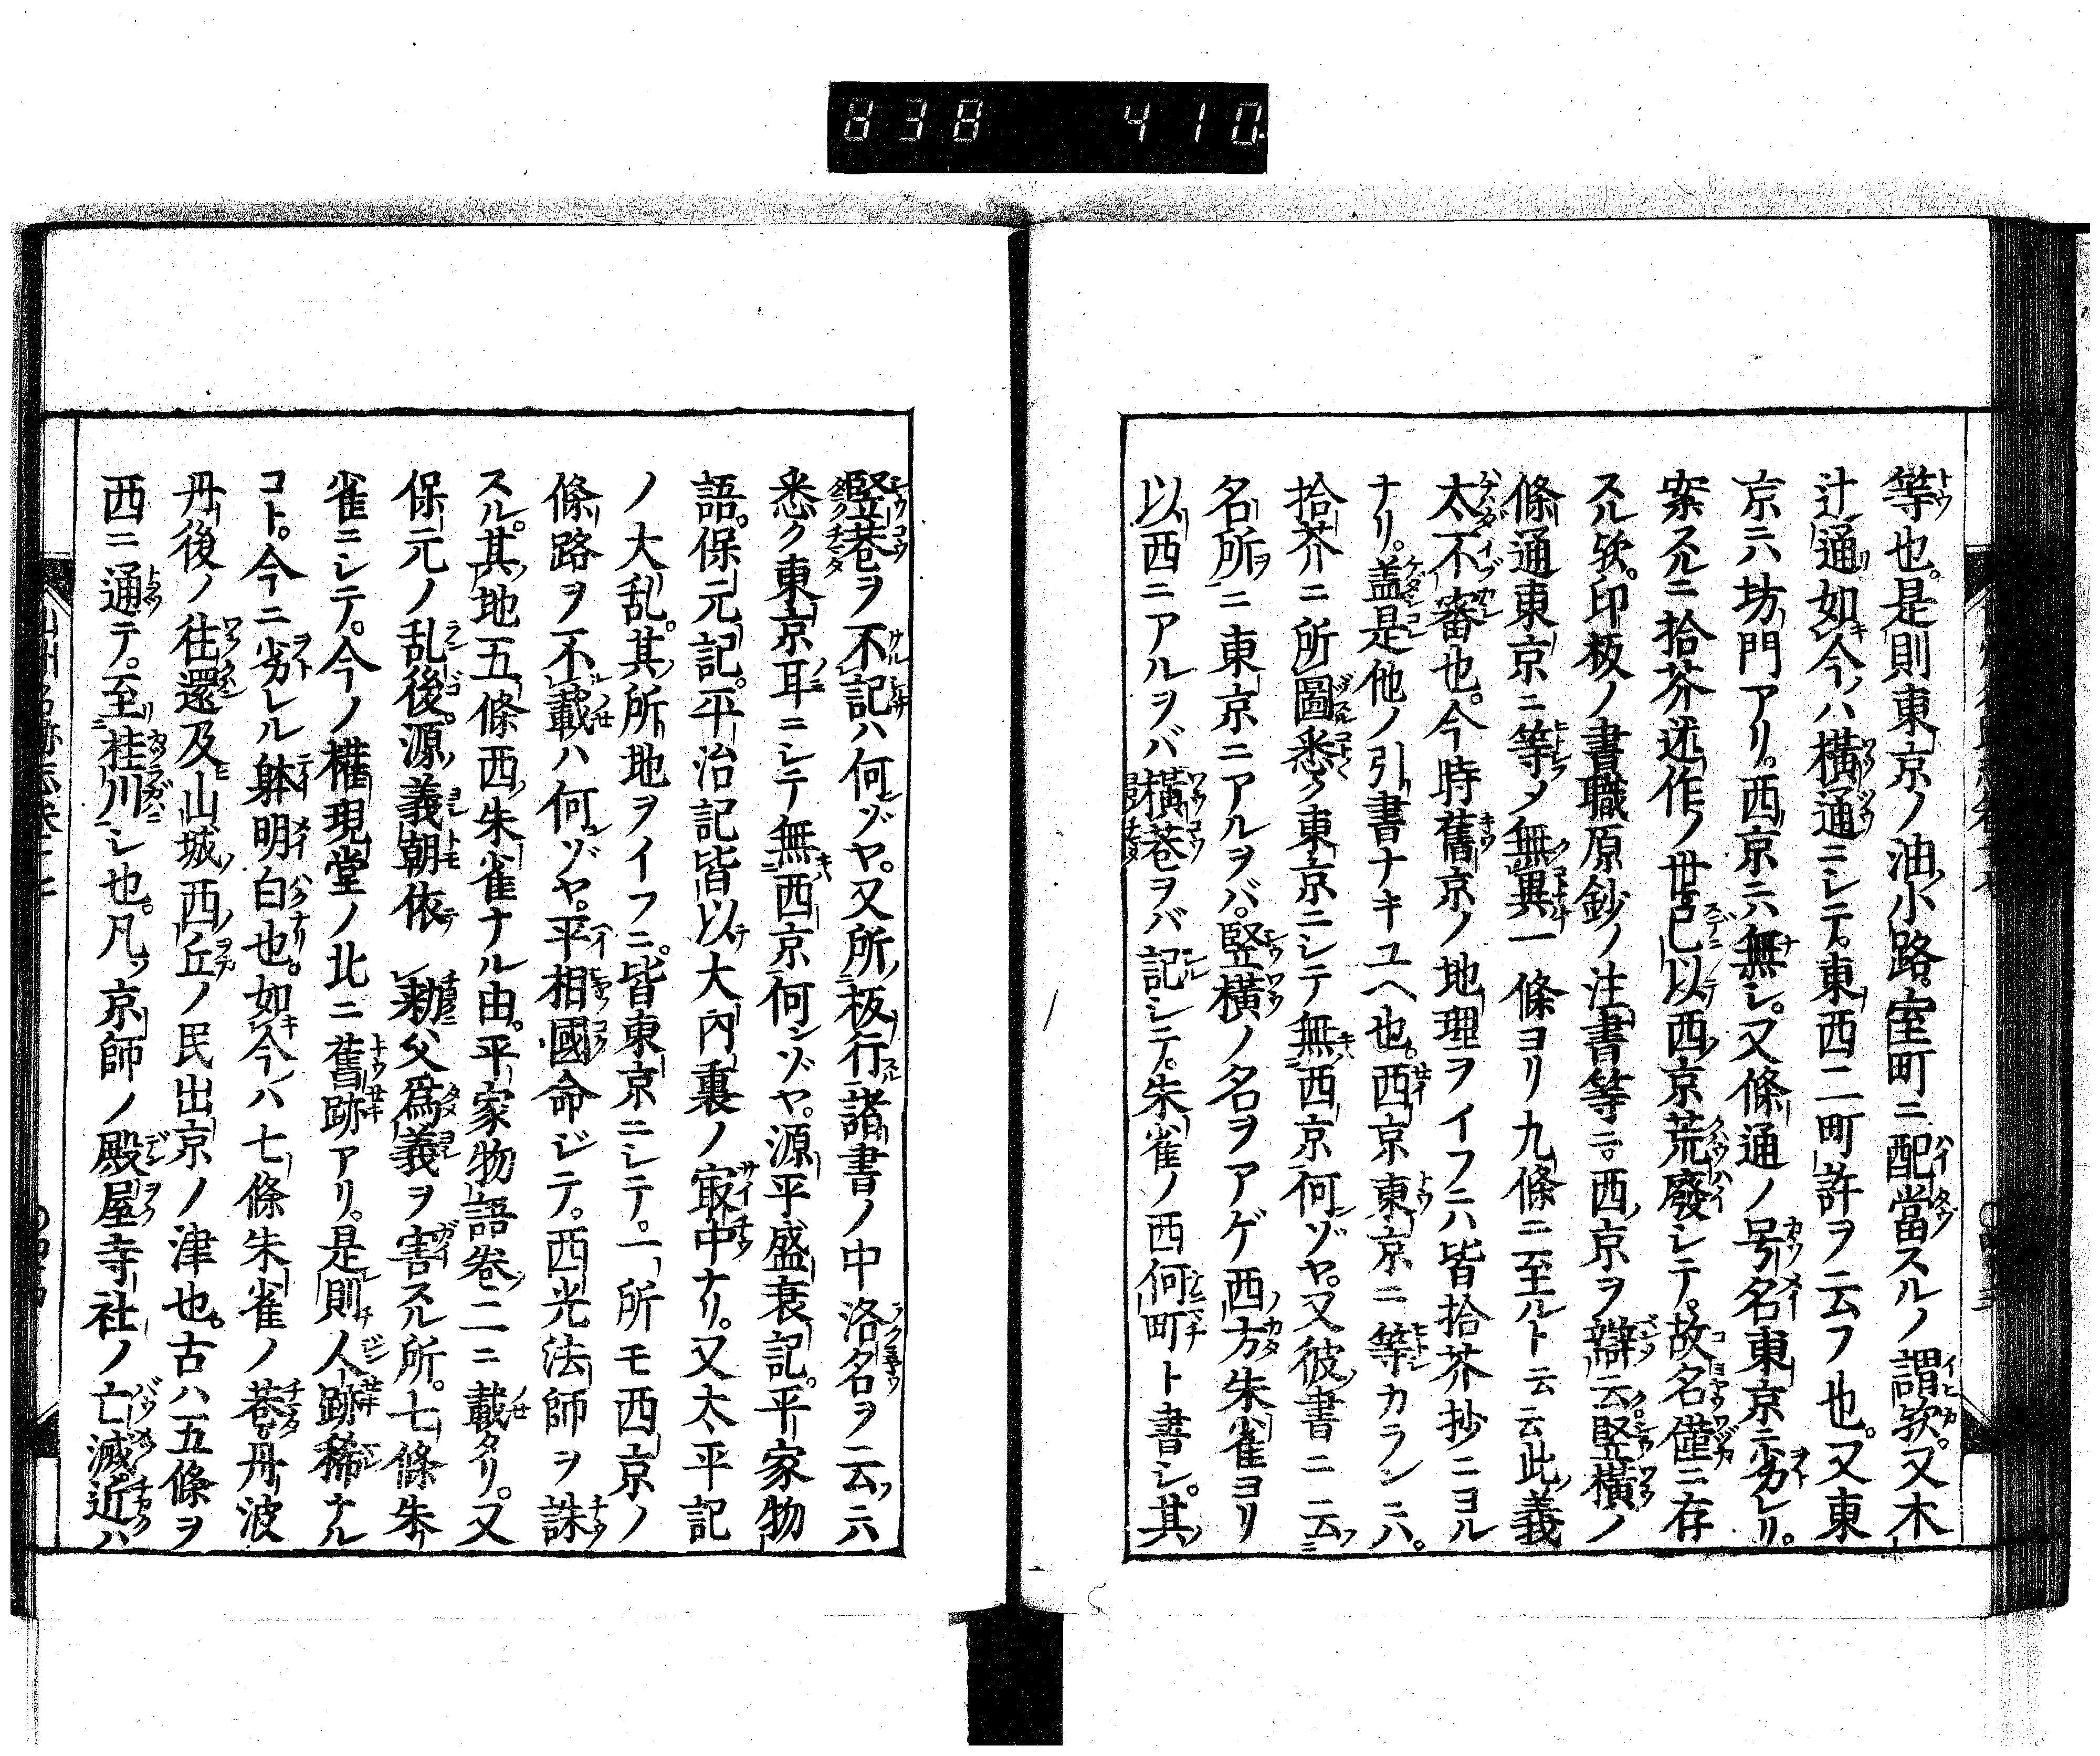 838 410
等也。是則東京ノ油小路。室町ニ配當スルノ謂欤。又木
辻通如今ハ橫通ニシテ。東西二町許ヲ云フ也。又東
京ニハ坊門アリ。西京ニハ無シ。又條通ノ号名東京ニ劣レリ。
案スルニ拾芥述作ノ世已以西京荒廢シテ。故名僅ニ存
スル欤。印板ノ書職原鈔ノ注書等ニ。西京ヲ辯云竪橫ノ
條通東京ニ等メ無異一條ヨリ九條ニ至ルト云云此義
太不審也。今時舊京ノ地理ヲイフニハ皆拾芥抄ニヨル
ナリ。盖是他ノ引書ナキユヘ也。西京東京ニ等カランニハ。
拾芥ニ所圖悉ク東京ニシテ無西京何ゾヤ。又彼書ニ云
名所ニ東京ニアルヲバ。竪橫ノ名ヲアゲ西方朱雀ヨリ
以西ニアルヲバ橫巷ヲバ記シテ。朱雀ノ西何町ト書シ。其
竪巷ヲ不記ハ何ゾヤ。又所板行諸書ノ中洛名ヲ云ニハ
悉ク東京耳ニシテ無西京何ゾヤ。源平盛衰記。平家物
語。保元記。平治記皆以大內裏ノ㝡中ナリ。又太平記
ノ大乱。其所地ヲイフニ。皆東京ニシテ。一所モ西京ノ
條路ヲ不載ハ何ゾヤ。平相國命ジテ。西光法師ヲ誅
スル。其地五條西朱雀ナル由。平家物語卷二ニ載タリ。又
保元ノ乱後。源義朝依勅父爲義ヲ害スル所。七條朱
雀ニシテ。今ノ權現堂ノ北ニ舊跡アリ。是則人跡稀ナル
コト。今ニ劣レル躰明白也。如今ハ七條朱雀ノ巷丹波
丹後ノ往還及山城西丘ノ民出京ノ津也。古ハ五條ヲ
西ニ通テ。至桂川シ也。凡ソ京師ノ殿屋寺社ノ亡滅近ハ